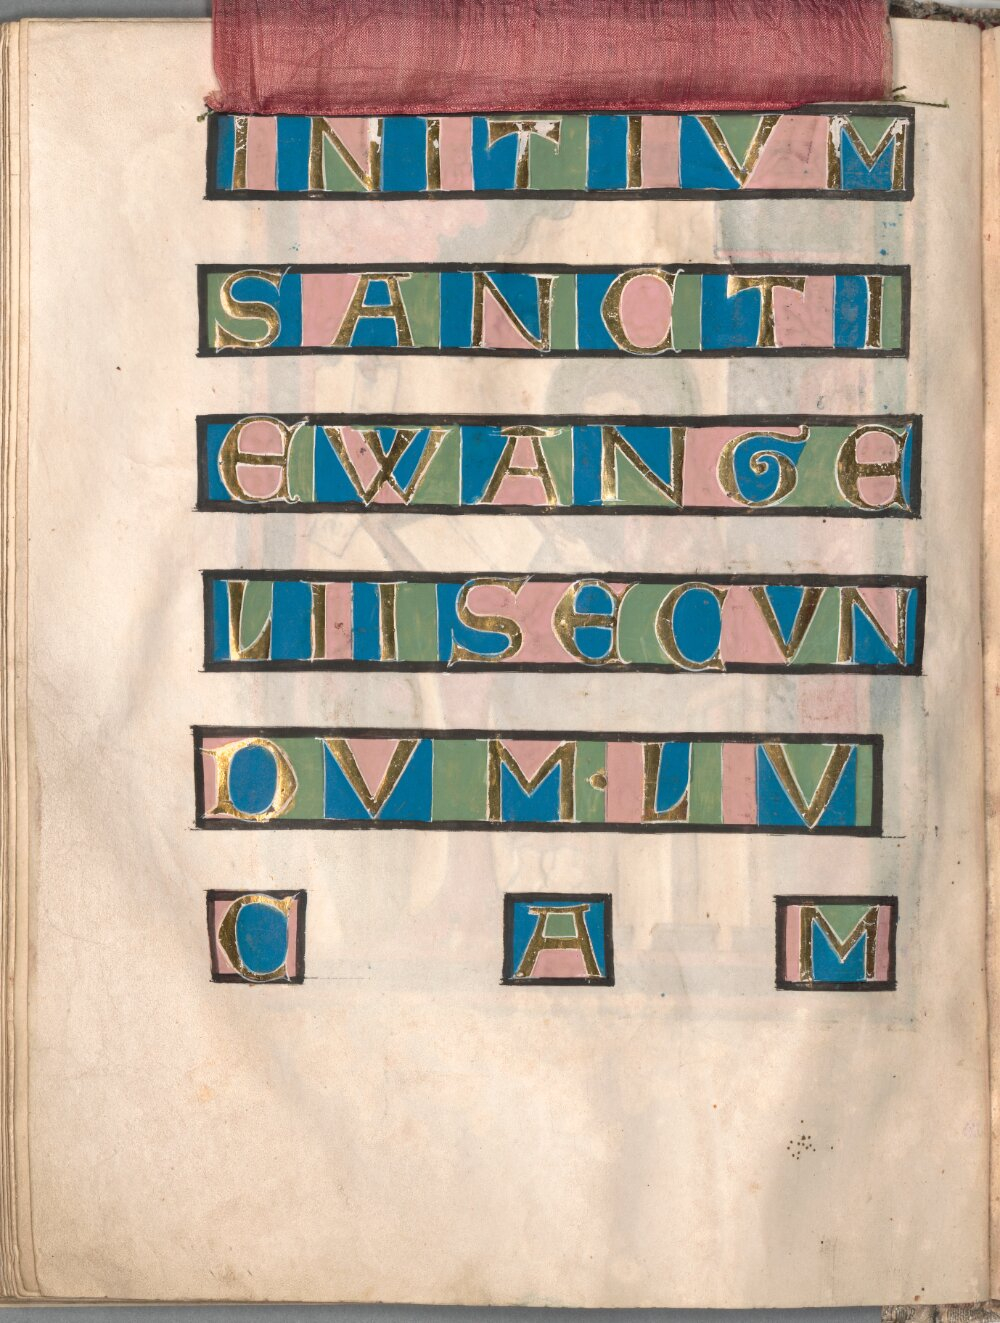 INITIVM
SANCTI
EWANGE
LII SECVN
DVM · LV
CAM